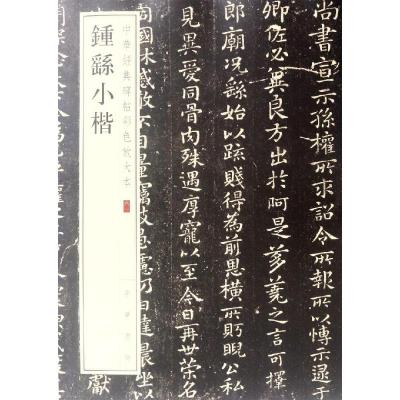 鍾繇小楷
中華經典碑帖彩色放大本
中華書局
尚書宣示孫權所求詔令所報所以博示逮于
卿佐必冀良方出於阿是芻蕘之言可擇
郎廟況繇始以疏賤得為前恩橫所盱睨公私
見異愛同骨肉殊遇厚寵以至今日再世榮名
同國休慼敢不自量竊致愚慮仍日達晨坐以
獻